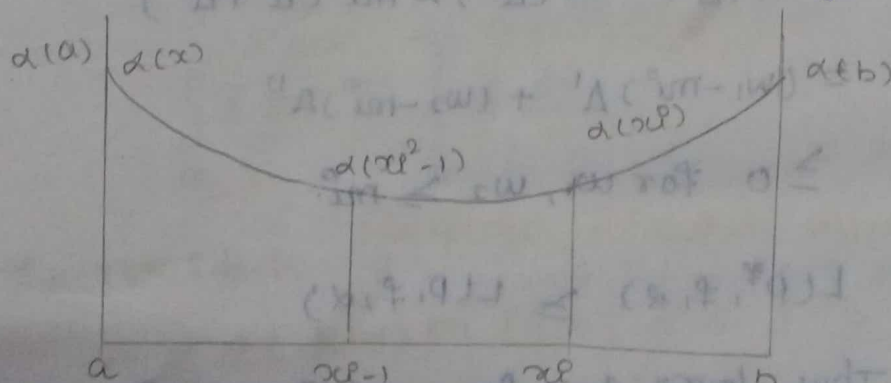 α(a) α(x) α(b)
α(xi)
α(xi-1)
a xi-1 xi b